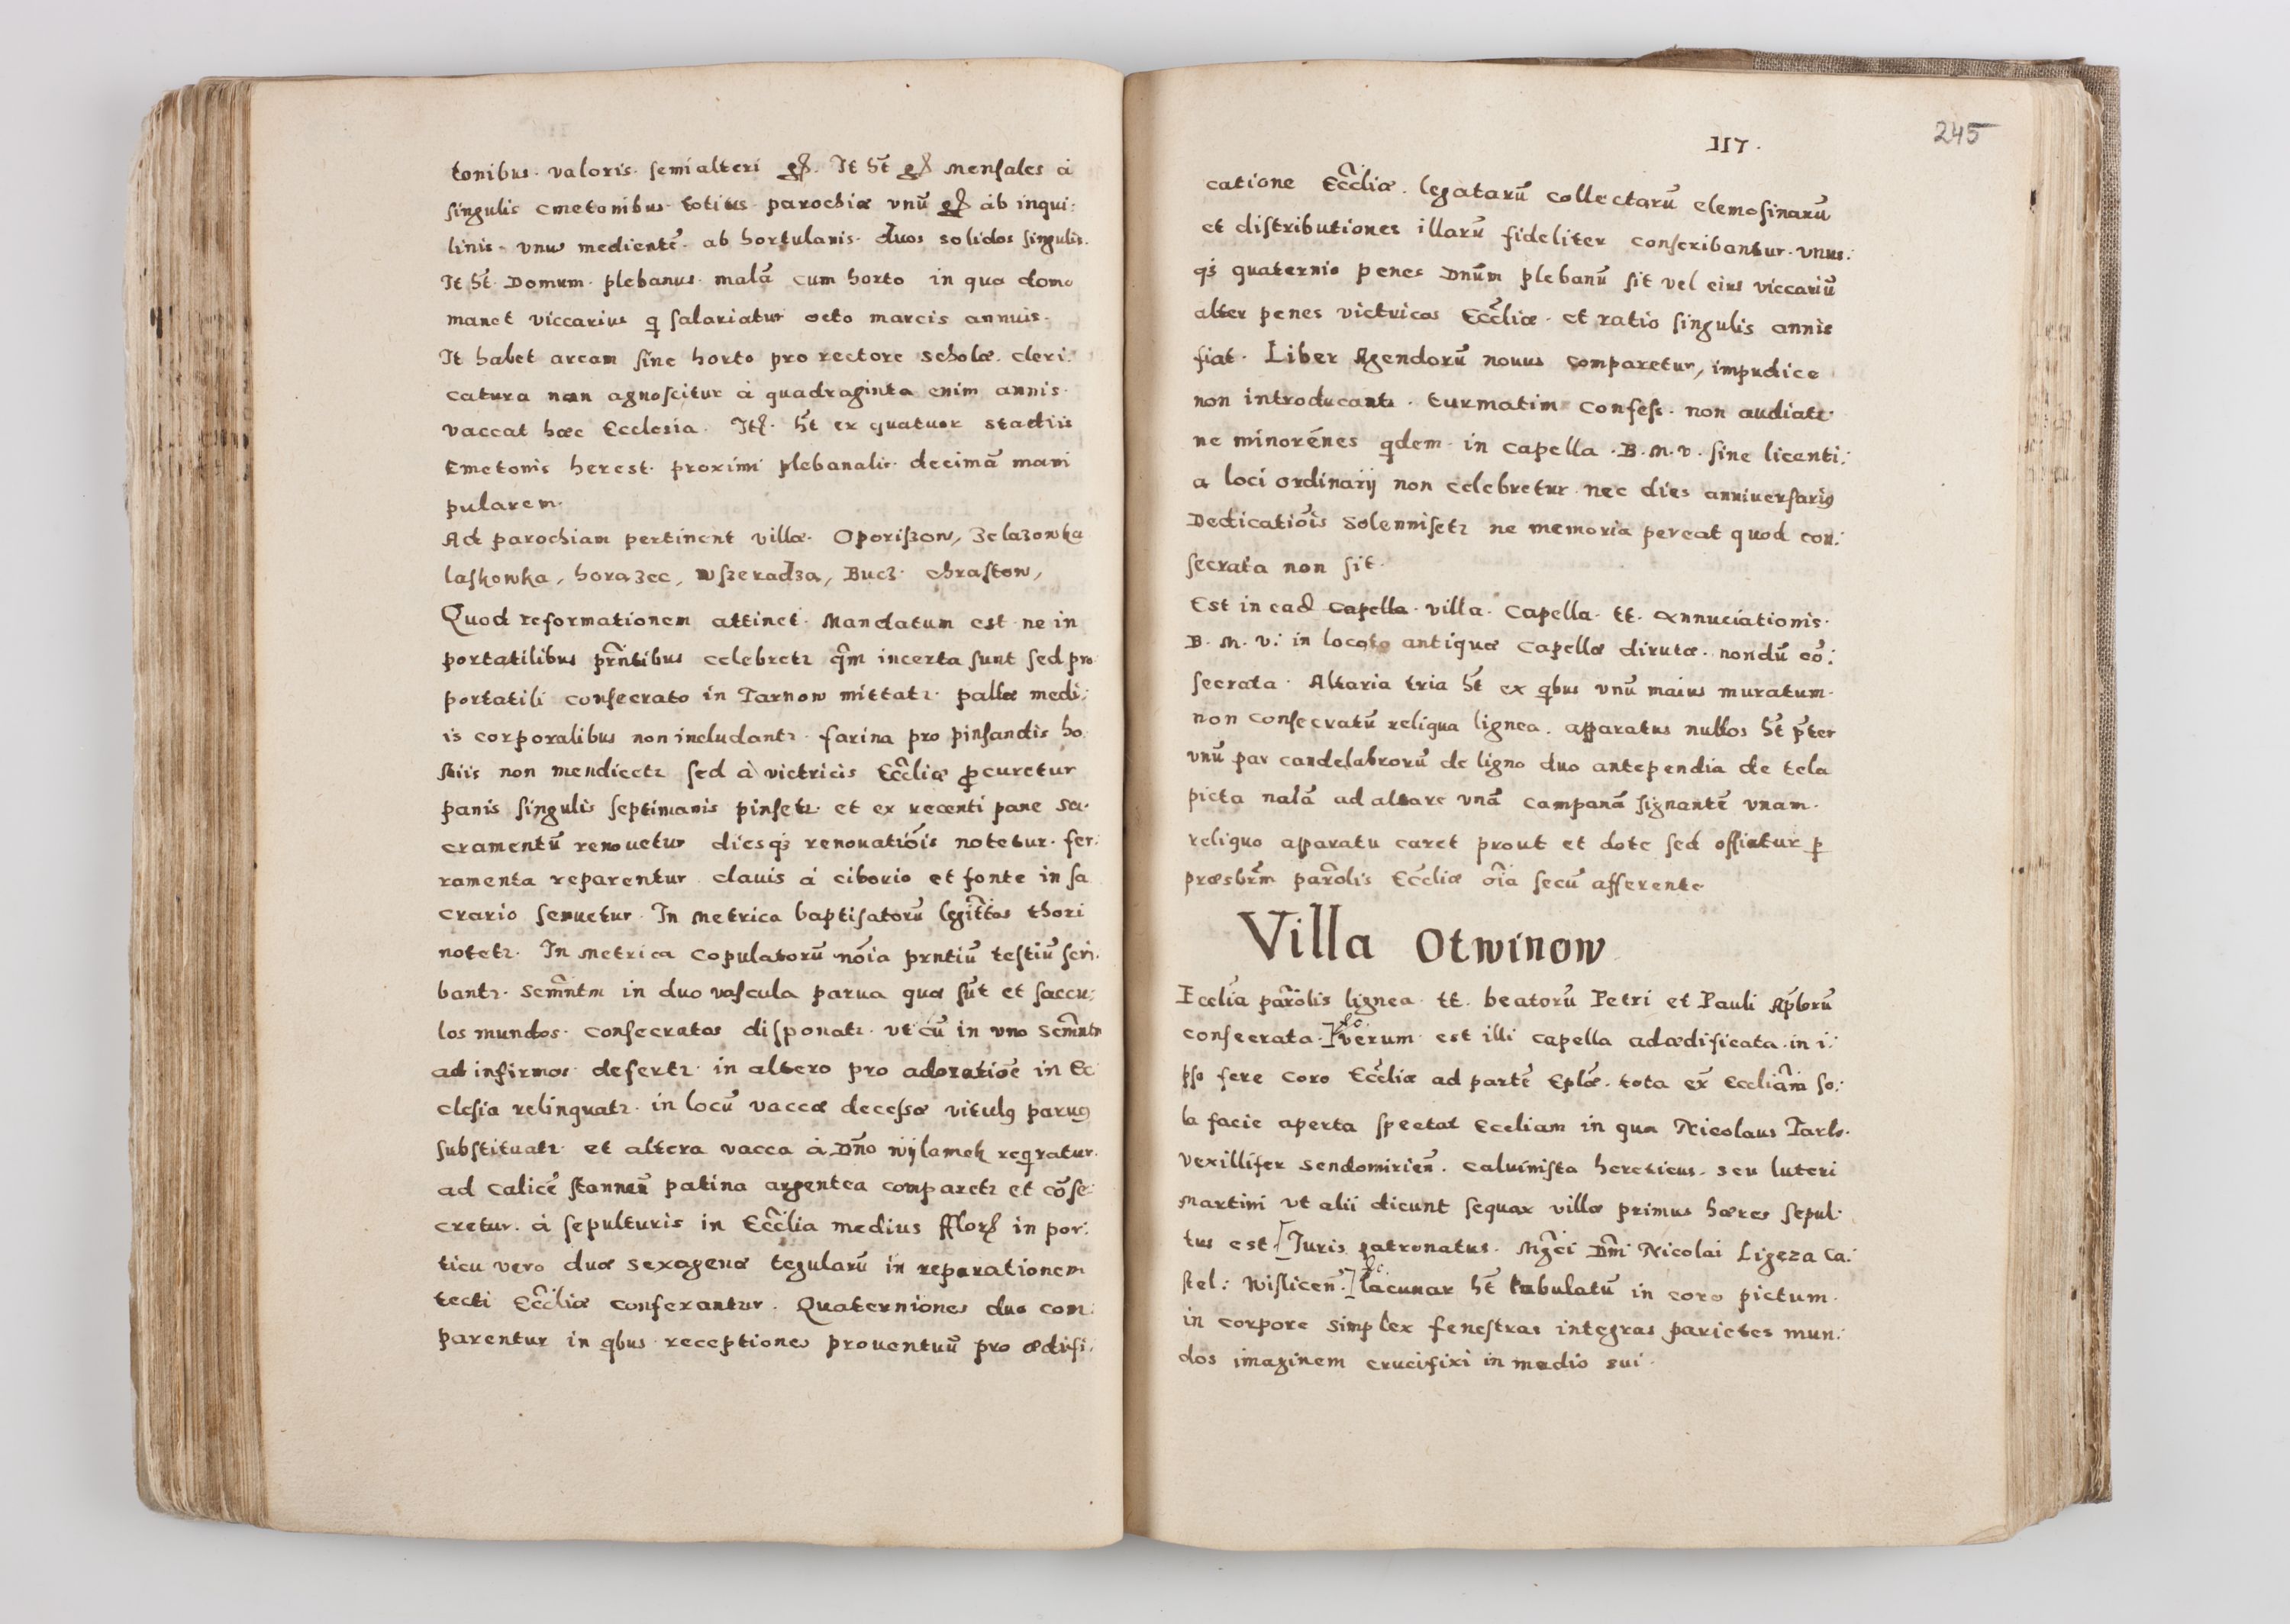 tonibus. valoris. semialteri g͞r. It hēt g͞r mensales à
singulis cmetonibus totius parochiæ vnū g͞r ab inqui:
linis. vnū medientē. ab hortulanis. duos solidos singulis.
It hēt. Domum. plebanus. malā cum horto in qua domo
manet viccarius q salariatur octo marcis annuis.
It habet aream sine horto pro rectore scholæ. cleri:
catura non agnoscitur à quadraginta enim annis.
vaccat hæc Ecclesia. It. hēt ex quatuor stadiis
Cmetonis herest. proximi plebanalis. decimā mani
pularem.
Ad parochiam pertinent villæ. Oporiszow, Zelazowka
laskowka, horazec, wszeradza, Bucz. chrastow,
Quod reformationem attinet. Mandatum est ne in
portatilibus prn̄tibus celebretz qm̄ incerta sunt sed pro
portatili consecrato in Tarnow mittatz. pallæ medi:
is corporalibus non includantz. farina pro pinsandis ho
stiis non mendicetz sed à victricis Ecc̄liæ ꝓcuretur
panis singulis septimanis pinsetz. et ex recenti pane sa.
cramentū renouetur diesqz renouatiōis notetur. fer:
ramenta reparentur clauis à ciborio et fonte in sa
crario seruetur. In metrica baptisatorū legitt̄os thori
notetz. In metrica copulatorū nōia prntiū testiū scri.
bantz. scm̄ntm in duo vascula parua quæ sūt et saccu:
los mundos. consecratos disponatz. vt cū in vno scm̄ntm
ad infirmos. defertz. in altero pro adoratiōe in Ec
clesia relinquatz. in locū vaccæ decessæ vitulꝰ paruꝰ
substituatz. et altera vacca à Dn̄o wijlamek reqratur.
ad calicē stanneū patina argentea comparetz et cōse:
cretur. à sepulturis in Ecc̄lia medius fflor in por:
ticu vero duæ sexagenæ tegularū in reparationem
tecti Ecc̄liæ conferantur. Quaterniones duo com:
parentur in qbus receptiones prouentuū pro ædifi:
117.
245
catione Ecc̄liæ. legatarū collectarū elemosinarū
et distributiones illarū fideliter conscribantur. vnus:
qz quaternio penes Dnūm plebanū sit vel eius viccariū
alter penes victricos Ecc̄liæ. et ratio singulis annis
fiat. Liber Agendorū nouus comparetur, impudice
non introducantz. turmatim confess. non audiatz.
ne minorēnes qdem. in capella. B. M. V. sine licenti:
a loci ordinarij non celebretur nec dies anniuersariꝰ
Dedicatiōis solennisetz ne memoria pereat quod con:
secrata non sit.
Est in ead capella. villa. capella. tt. Annuciationis.
B. M. V: in loco antiquæ capellæ dirutæ. nondū cō:
secrata. Altaria tria hēt ex qbus vnū maius muratum.
non consecratū reliqua lignea. apparatus nullos hēt p̄ter
vnū par candelabrorū de ligno duo antependia de tela
picta nalā ad altare vnā campanā signantē vnam.
reliquo apparatu caret prout et dote sed officiatur p
præsbr̄m parōlis Ecc̄liæ ōia secū afferente
Villa Otwinow
Ecclīa parōlis lignea. tt. beatorū Petri et Pauli Apl̄orū
consecrata. [verum est illi capella adædificata. in i:
pso fere coro Ecc̄liæ ad partē Eplæ. tota ex̄ Eccliām so:
la facie aperta spectat Eccliam in qua Nicolaus Tarlo.
vexillifer sendomirieñ. caluinista hereticus. seu luteri
Martini vt alii dicunt sequax villæ primus hæres sepul.
tus est. [Juris patronatus. Mgc̄i Dm̄i Nicolai Ligeza Ca:
stel: Wisliceñ.] lacunar hēt tabulatū in coro pictum.
in corpore simplex fenestras integras parietes mun:
dos imaginem crucifixi in medio sui.